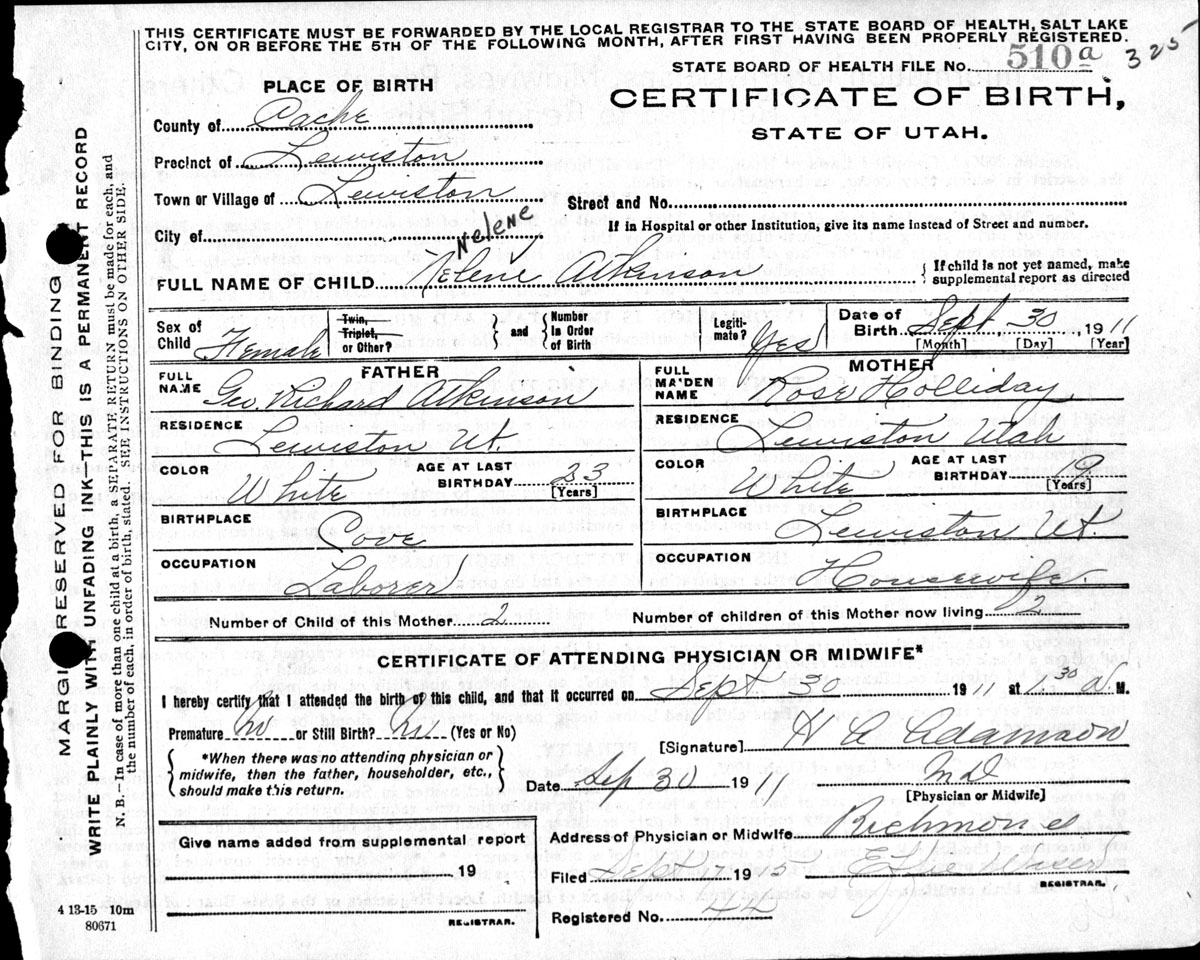 THIS CERTIFICATE MUST BE FORWARDED BY THE LOCAL REGISTRAR TO THE STATE BOARD OF HEALTH, SALT LAKE
CITY, ON OR BEFORE THE 5TH OF THE FOLLOWING MONTH, AFTER FIRST HAVING BEEN PROPERLY REGISTERED.
STATE BOARD OF HEALTH FILE No. 510a 325
CERTIFICATE OF BIRTH,
STATE OF UTAH.
PLACE OF BIRTH
County of Cache
Precinct of Lewiston
Town or Village of Lewiston
Street and No.
City of
If in Hospital or other Institution, give its name Instead of Street and number.
Nelene
FULL NAME OF CHILD Nelene Atkinson
{ If child is not yet named, make
supplemental report as directed
Sex of Child Female
Twin, Triplet, or Other? } and { Number in Order of Birth
Legitimate? Yes
Date of Birth Sept 30 1911
[Month] [Day] [Year]
FATHER
FULL NAME Geo. Richard Atkinson
RESIDENCE Lewiston Ut.
COLOR White
AGE AT LAST BIRTHDAY 23 [Years]
BIRTHPLACE Cove
OCCUPATION Laborer
MOTHER
FULL MAIDEN NAME Rose Holliday
RESIDENCE Lewiston Utah
COLOR White
AGE AT LAST BIRTHDAY 19 [Years]
BIRTHPLACE Lewiston Ut.
OCCUPATION Housewife.
Number of Child of this Mother 2
Number of children of this Mother now living 2
CERTIFICATE OF ATTENDING PHYSICIAN OR MIDWIFE*
I hereby certify that I attended the birth of this child, and that it occurred on Sept 30 1911 at 30 a M.
Premature No or Still Birth? No (Yes or No)
{ *When there was no attending physician or
midwife, then the father, householder, etc.,
should make this return. }
[Signature] H A Adamson
Date Sep 30 1911 MD
[Physician or Midwife]
Give name added from supplemental report
19
REGISTRAR.
Address of Physician or Midwife Richmond
Filed Sept 17 1915
REGISTRAR.
Registered No. 42
4 13-15 10m
80671
MARGIN RESERVED FOR BINDING
WRITE PLAINLY WITH UNFADING INK-THIS IS A PERMANENT RECORD
N. B.—In case of more than one child at a birth, a SEPARATE RETURN must be made for each, and
the number of each, in order of birth, stated. SEE INSTRUCTIONS ON OTHER SIDE.